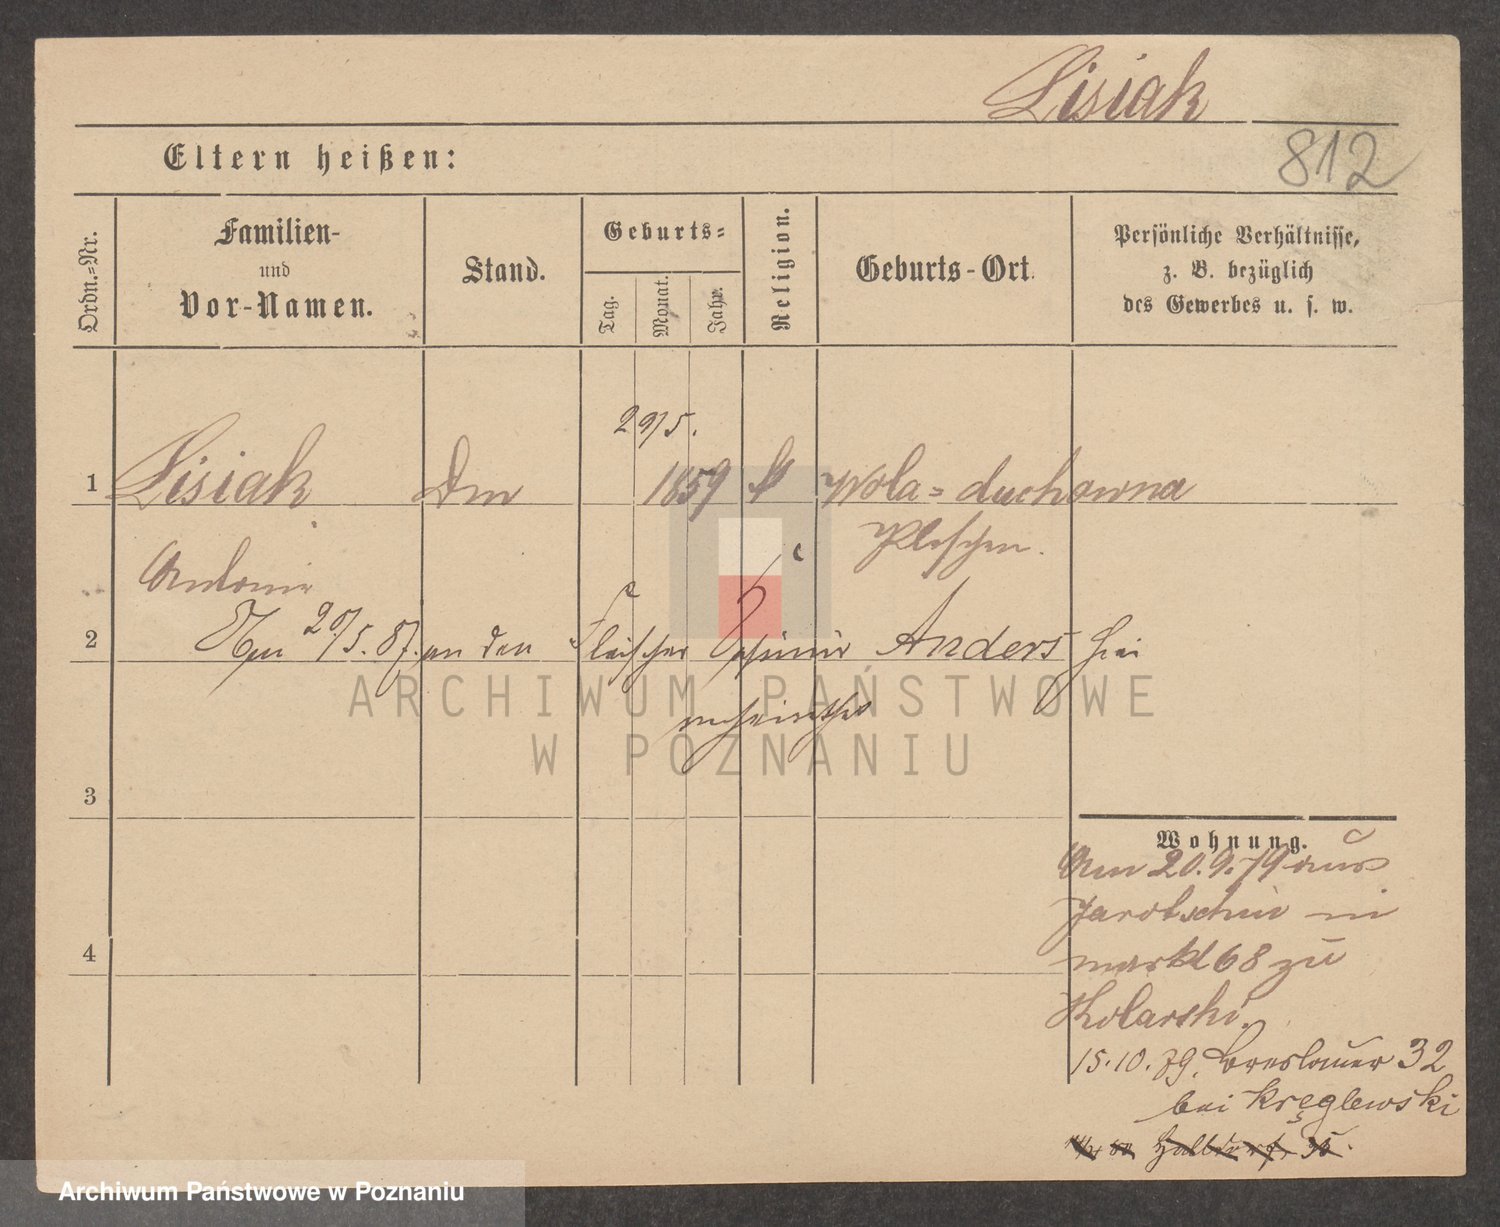 Lisiak
812
Eltern heißen:
Ordn.=Nr.
Familien-
und
Vor-Namen.
Stand.
Geburts=
Tag.
Monat.
Jahr.
Religion.
Geburts-Ort.
Persönliche Verhältnisse,
z. B. bezüglich
des Gewerbes u. s. w.
29/5.
1 Lisiak 1859 Wola=duchowna
Pleschen.
Antonie
2 20/5.87. an den Fleischer Casimir Anders hier
verheirathet
3
Wohnung.
Am 20.9.79 aus
Jarotschin in
markt 68 zu
Kolarski.
4
15.10.79. Breslauer 32
bei Kręglewski
Halbdorf. 35.
ARCHIWUM PAŃSTWOWE
W POZNANIU
Archiwum Państwowe w Poznaniu